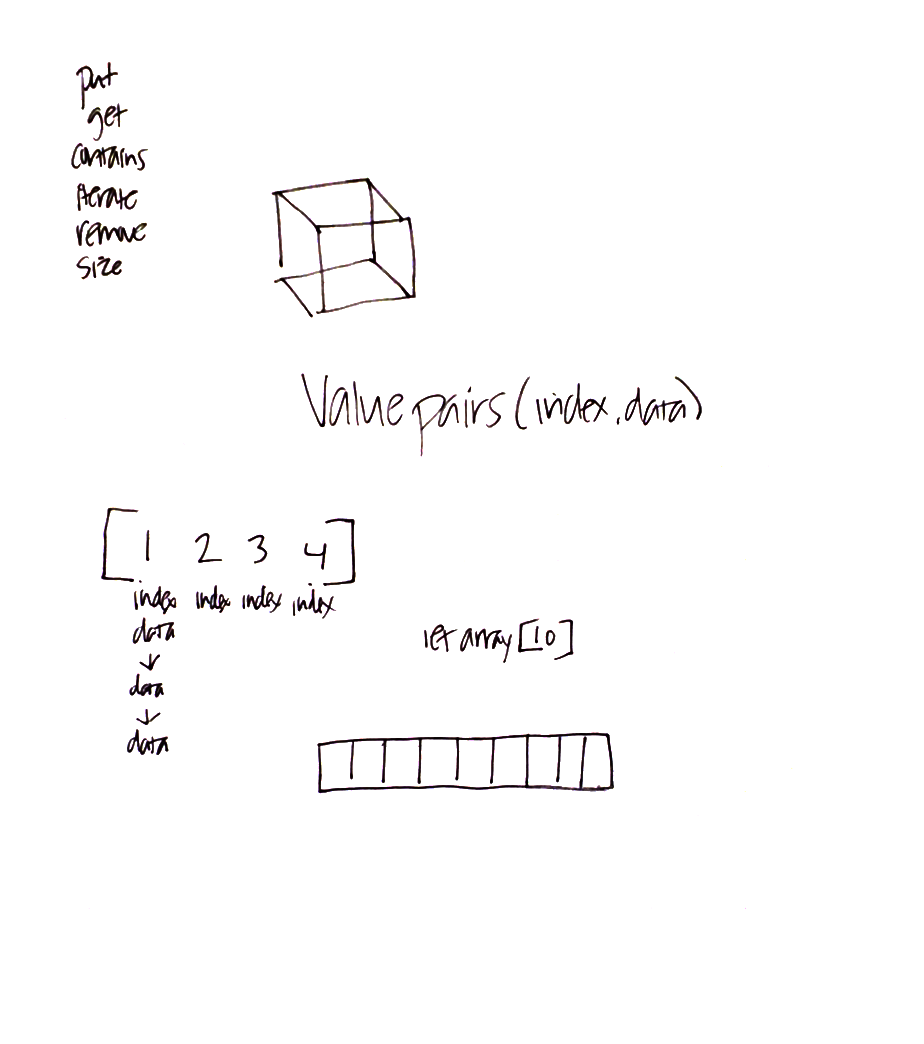 put
get
contains
iterate
remove
size
Value pairs (index, data)
[1 2 3 4]
index index index index
data
let array [10]
↓
data
↓
data